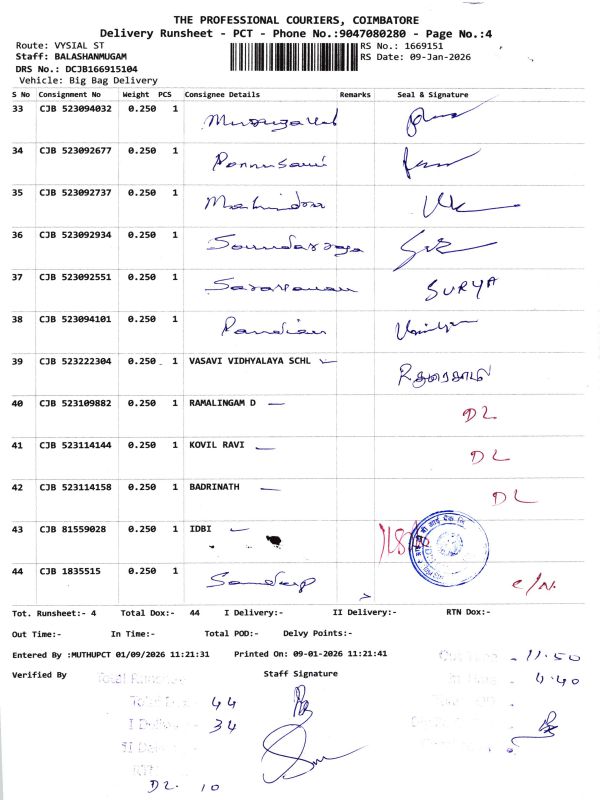 THE PROFESSIONAL COURIERS, COIMBATORE
Delivery Runsheet - PCT - Phone No.:9047080280 - Page No.:4
Route: VYSIAL ST RS No.: 1669151
Staff: BALASHANMUGAM RS Date: 09-Jan-2026
DRS No.: DCJB166915104
Vehicle: Big Bag Delivery
S No Consignment No Weight PCS Consignee Details Remarks Seal & Signature
33 CJB 523094032 0.250 1
34 CJB 523092677 0.250 1 Ponnusami
35 CJB 523092737 0.250 1
36 CJB 523092934 0.250 1 Soundararaja
37 CJB 523092551 0.250 1 Saravanan SURYA
38 CJB 523094101 0.250 1 Pandian
39 CJB 523222304 0.250 1 VASAVI VIDHYALAYA SCHL
40 CJB 523109882 0.250 1 RAMALINGAM D DL
41 CJB 523114144 0.250 1 KOVIL RAVI DL
42 CJB 523114158 0.250 1 BADRINATH DL
43 CJB 81559028 0.250 1 IDBI
44 CJB 1835515 0.250 1 Sandeep C/N.
Tot. Runsheet:- 4 Total Dox:- 44 I Delivery:- II Delivery:- RTN Dox:-
Out Time:- In Time:- Total POD:- Delvy Points:-
Entered By :MUTHUPCT 01/09/2026 11:21:31 Printed On: 09-01-2026 11:21:41
Out Time - 11.50
Verified By Total Runsheet Staff Signature In Time - 4.40
Total Dox - 44
I Delivery - 34
II Delivery
DL. 10